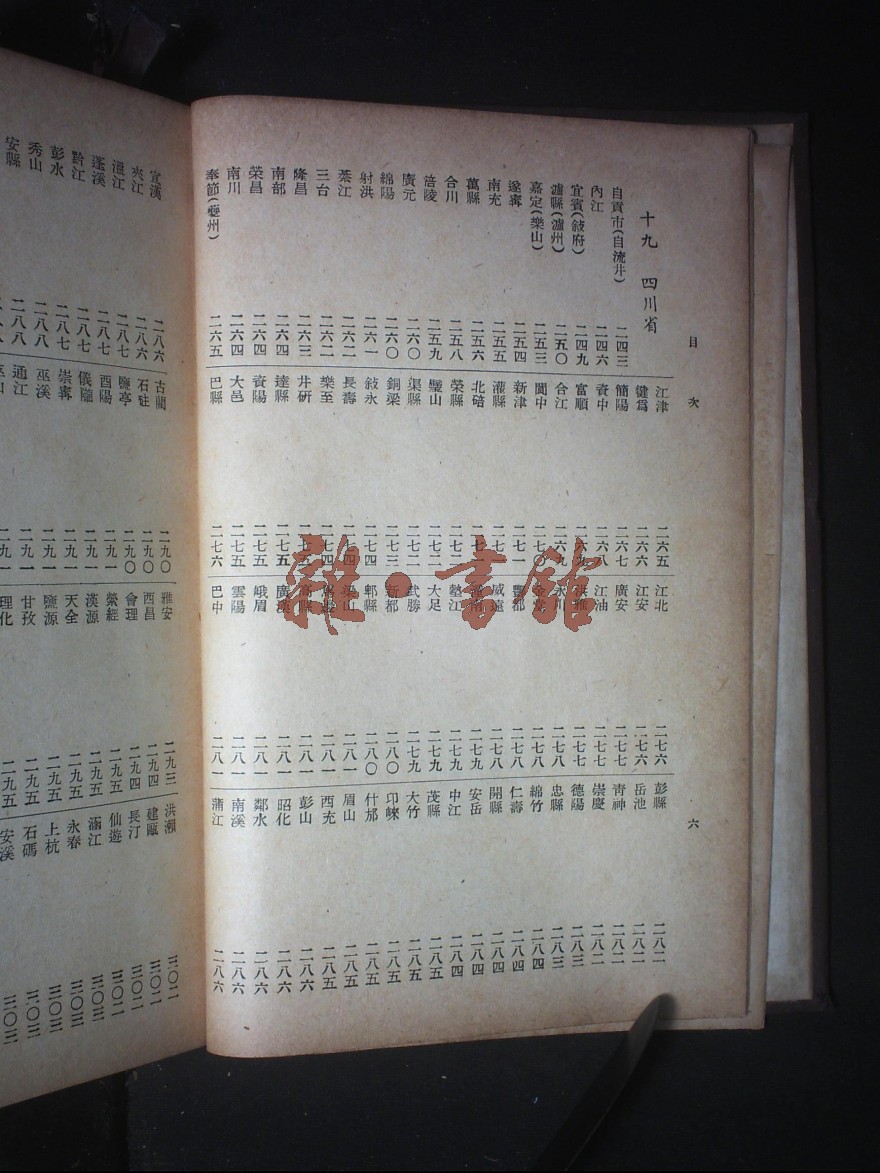 目次
六
十九 四川省
自貢市(自流井) 二四三
內江 二四六
宜賓(敍府) 二四九
瀘縣(瀘州) 二五〇
嘉定(樂山) 二五三
遂寧 二五四
南充
萬縣 二五六
合川 二五八
涪陵 二五九
廣元 二六〇
綿陽 二六〇
射洪 二六一
綦江 二六二
三台 二六二
隆昌 二六三
南部 二六四
榮昌 二六四
南川 二六四
奉節(夔州) 二六五
江津 二六五
犍爲 二六六
簡陽 二六七
資中 二六八
富順 二六九
合江 二六九
閬中 二七〇
新津 二七一
灌縣
北碚
榮縣 二七二
璧山 二七二
渠縣 二七三
銅梁 二七三
敍永 二七四
長壽 二七四
樂至 二七四
井研 二七五
達縣 二七五
資陽 二七五
大邑 二七五
巴縣 二七六
江北 二七六
江安 二七六
廣安 二七七
江油 二七七
洪雅 二七八
永川 二七八
金堂 二七八
豐都 二七八
威遠 二七八
潼南 二七九
墊江 二七九
大足 二七九
武勝 二七九
新都 二八〇
郫縣 二八〇
梁山 二八一
二八一
高縣 二八一
廣漢 二八一
峨眉 二八一
雲陽 二八一
巴中 二八一
彭縣 二八二
岳池 二八二
青神 二八二
崇慶 二八二
德陽 二八三
忠縣 二八三
綿竹 二八四
仁壽 二八四
開縣 二八四
安岳 二八四
中江 二八四
茂縣 二八五
大竹 二八五
卭崍 二八五
什邡 二八五
眉山 二八五
西充 二八五
彭山 二八六
昭化 二八六
鄰水 二八六
南溪 二八六
蒲江 二八六
宣漢 二八六
夾江 二八六
灌江 二八七
蓬溪 二八七
黔江 二八七
彭水 二八七
秀山 二八八
安縣 二八八
古藺 二九〇
石砫 二九〇
鹽亭 二九〇
酉陽 二九一
儀隴 二九一
崇寧 二九一
巫溪 二九一
通江 二九一
雅安 二九三
西昌 二九四
會理 二九四
滎經 二九五
漢源 二九五
天全 二九五
鹽源 二九五
甘孜 二九五
理化 二九五
洪瀨 三〇二
建甌 三〇二
長汀 三〇二
仙遊 三〇二
涵江 三〇三
永春 三〇三
上杭 三〇三
石碼 三〇三
安溪 三〇三
雜·書館